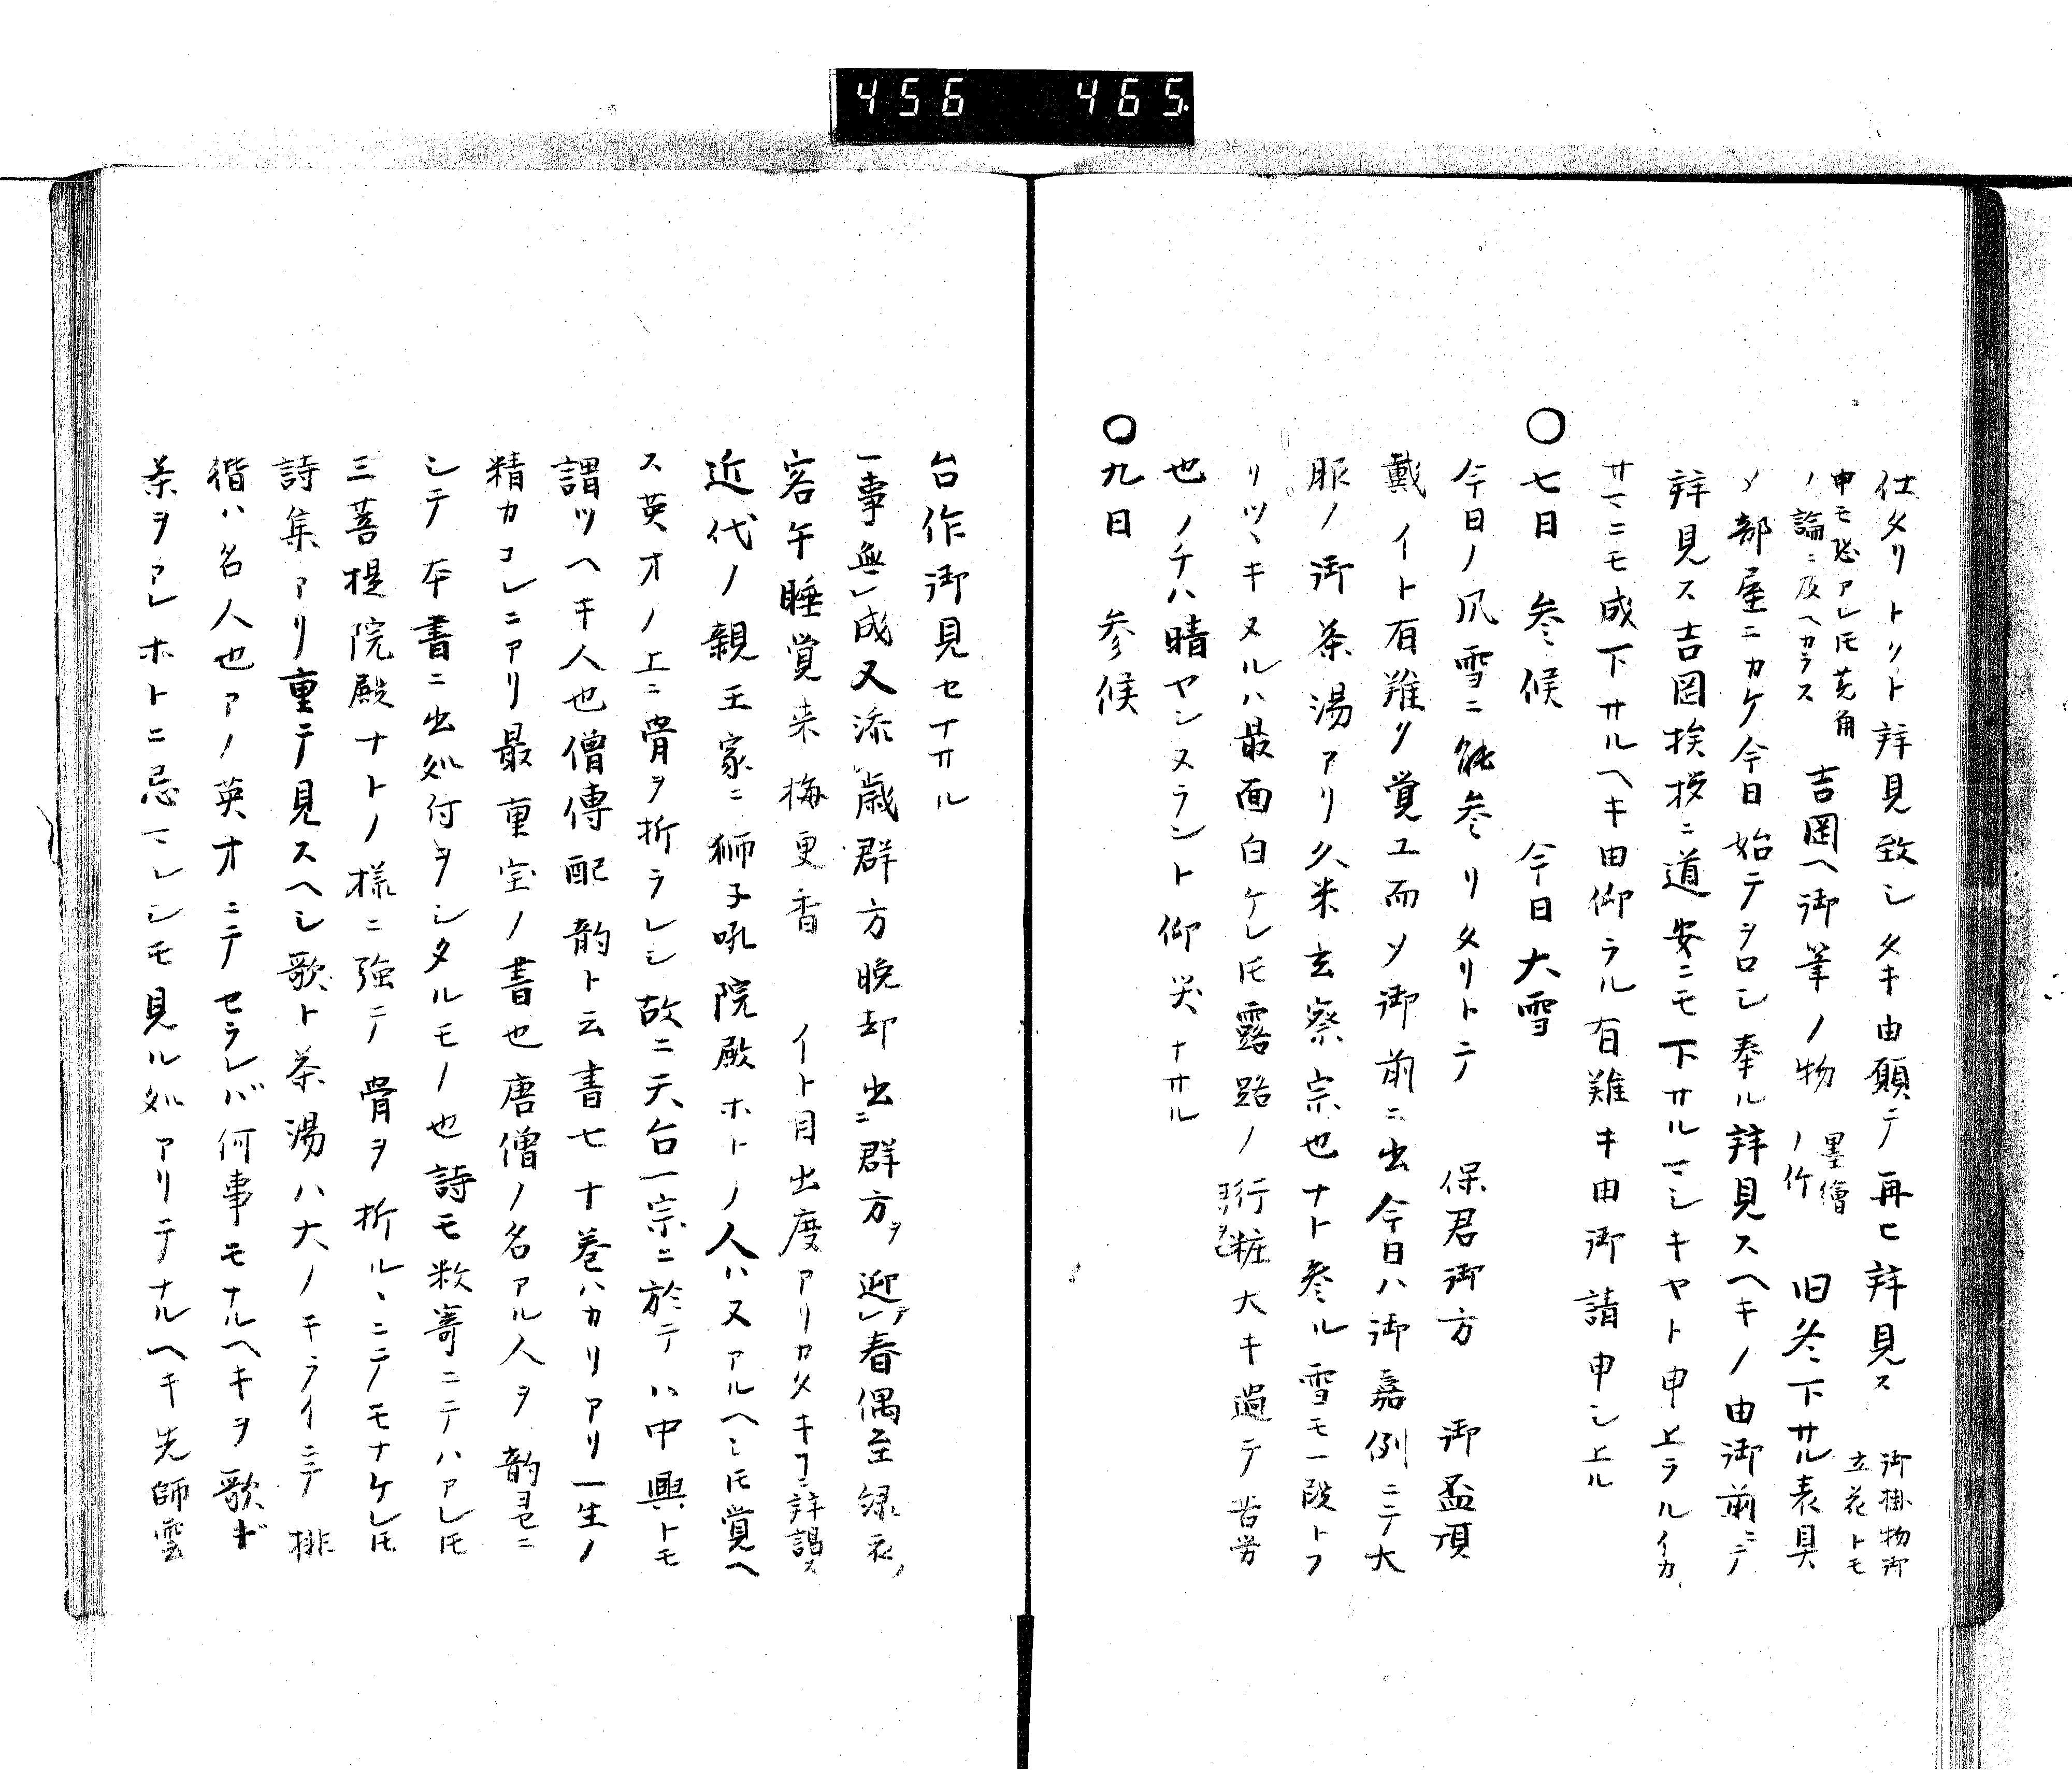 456 465
仕タリトソト拜見致シタキ由願テ再ヒ拜見ス 御掛物御立花トモ
申モ恐アレ𪜈兎角ノ論ニ及ヘカラス 吉岡ヘ御筆ノ物 墨繪ノ竹 旧冬下サル表具
〆部屋ニカケ今日始テヲロシ奉ル拜見スヘキノ由御前ニテ
拜見ス吉岡挨拶ニ道安ニモ下サルマシキヤト申上ラルイカ
サマニモ成下サルヘキ由仰ラル有難キ由御請申シ上ル
〇七日 参候 今日大雪
今日ノ風雪ニ能参リタリトテ 保君御方 御盃頂
戴イト有難ク覚ユ而〆御前ニ出今日ハ御嘉例ニテ大
服ノ御茶湯アリ久米玄察宗也ナト参ル雪モ一段トフ
リツヽキヌルハ最面白ケレ𪜈露路ノ行粧大キ過テ苦労
也ノチハ晴ヤシヌラント仰笑ナサル
〇九日 参候
台作御見セナサル
一事無レ成又添歳群方晩却出ニ群方ヲ迎レ春偶至緑衣ノ
客午睡覚来梅更香 イト目出度アリカタキヿニ拜謁ス
近代ノ親王家ニ獅子吼院殿ホトノ人ハ又アルヘシ𪜈覚ヘ
ス英才ノ上ニ骨ヲ折ラレシ故ニ天台一宗ニ於テハ中興トモ
謂ツヘキ人也僧傳配韵ト云書七十巻ハカリアリ一生ノ
精力コレニアリ最重宝ノ書也唐僧ノ名アル人ヲ韵ヨセニ
シテ本書ニ出処付ヲシタルモノ也詩モ数寄ニテハアレ𪜈
三菩提院殿ナトノ様ニ強テ骨ヲ折ルヽニテモナケレ𪜈
詩集アリ重テ見スヘシ歌ト茶湯ハ大ノキライニテ 排
偕ハ名人也アノ英才ニテセラレバ何事モナルヘキヲ歌ト
茶ヲアレホトニ忌マレシモ見ル処アリテナルヘキ先師雲